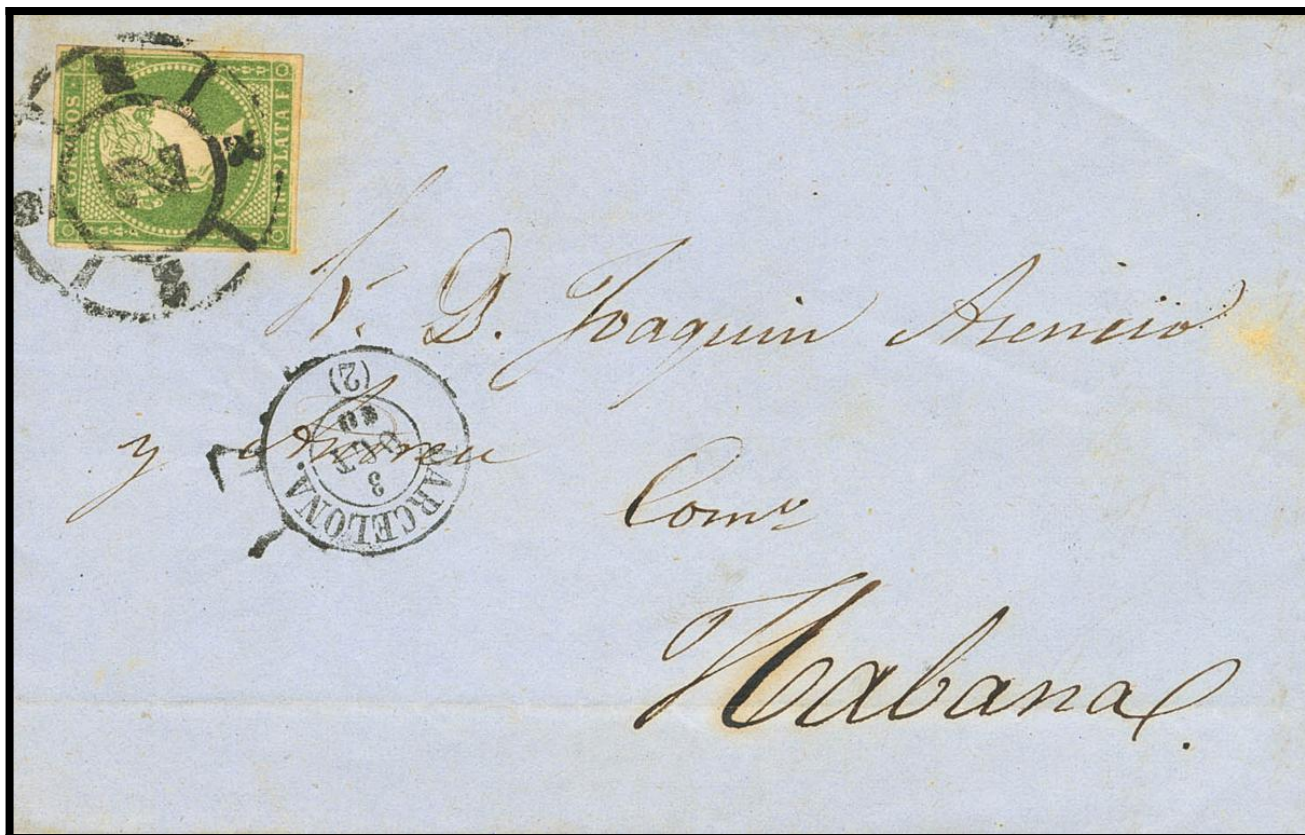 CORREOS
RL PLATA F
D. Joaquin Asencio
y Andreu
Com.º
Habana.
BARCELONA.
3
OCT
60
(2)